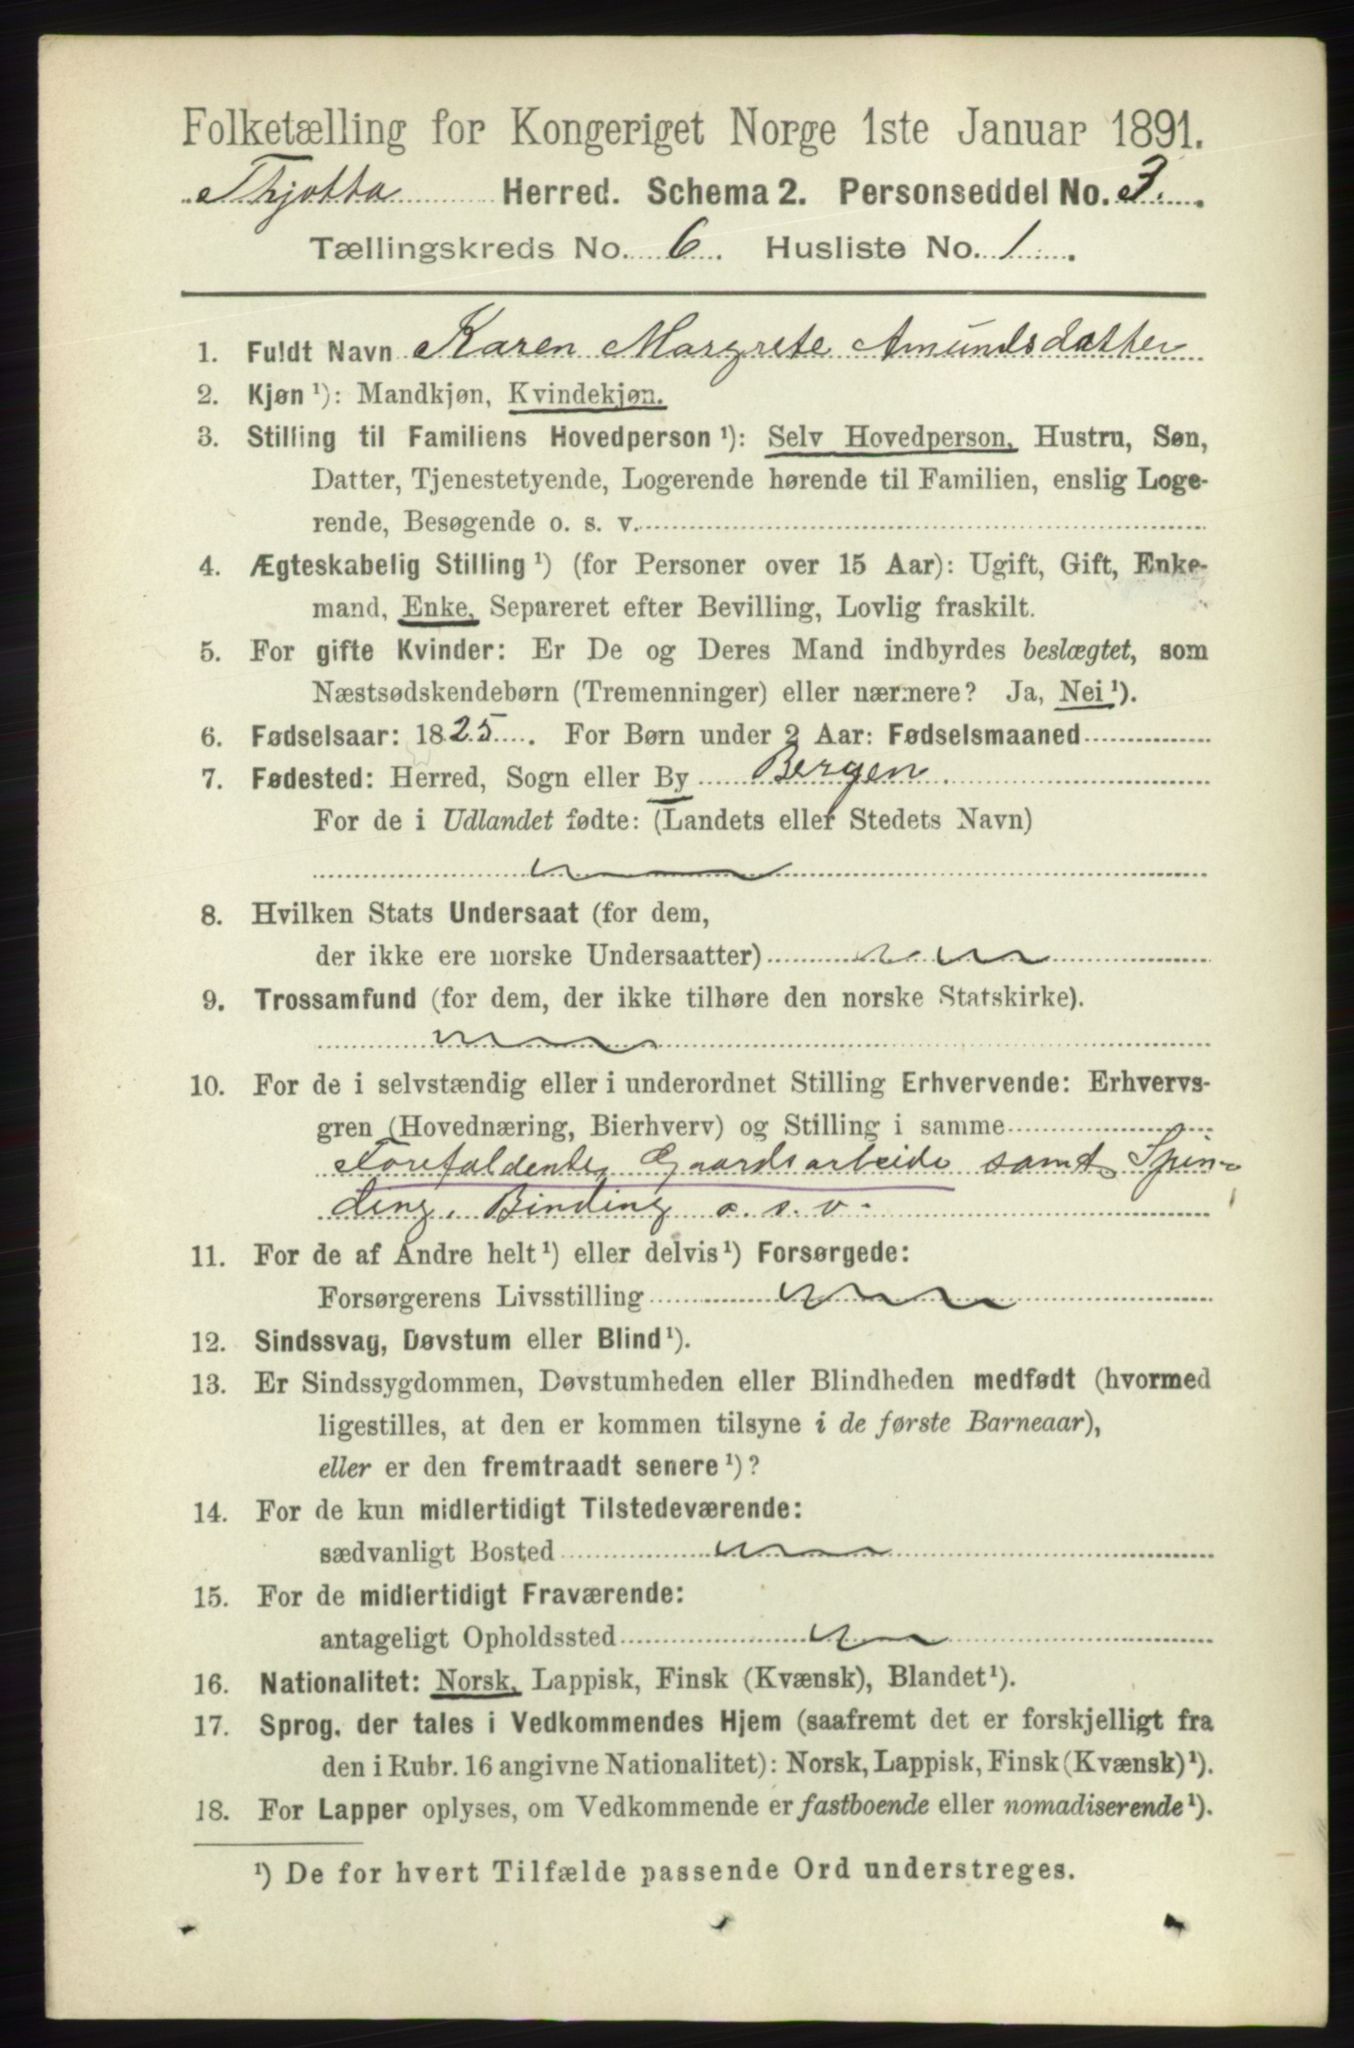 Folketælling for Kongeriget Norge 1ste Januar 1891.
Thjøtta Herred. Schema 2. Personseddel No. 3.
Tællingskreds No. 6. Husliste No. 1.
1. Fuldt Navn Karen Margrete Amundsdatter
2. Kjøn ¹): Mandkjøn, Kvindekjøn.
3. Stilling til Familiens Hovedperson ¹): Selv Hovedperson, Hustru, Søn,
Datter, Tjenestetyende, Logerende hørende til Familien, enslig Loge-
rende, Besøgende o. s. v.
4. Ægteskabelig Stilling ¹) (for Personer over 15 Aar): Ugift, Gift, Enke-
mand, Enke, Separeret efter Bevilling, Lovlig fraskilt.
5. For gifte Kvinder: Er De og Deres Mand indbyrdes beslægtet, som
Næstsødskendebørn (Tremenninger) eller nærmere? Ja, Nei ¹).
6. Fødselsaar: 1825. For Børn under 2 Aar: Fødselsmaaned
7. Fødested: Herred, Sogn eller By Bergen.
For de i Udlandet fødte: (Landets eller Stedets Navn)
8. Hvilken Stats Undersaat (for dem,
der ikke ere norske Undersaatter)
9. Trossamfund (for dem, der ikke tilhøre den norske Statskirke).
10. For de i selvstændig eller i underordnet Stilling Erhvervende: Erhvervs-
gren (Hovednæring, Bierhverv) og Stilling i samme
Forefaldente Gaardsarbeide samt Spin-
ding, Binding o. s. v.
11. For de af Andre helt ¹) eller delvis ¹) Forsørgede:
Forsørgerens Livsstilling
12. Sindssvag, Døvstum eller Blind ¹).
13. Er Sindssygdommen, Døvstumheden eller Blindheden medfødt (hvormed
ligestilles, at den er kommen tilsyne i de første Barneaar),
eller er den fremtraadt senere ¹)?
14. For de kun midlertidigt Tilstedeværende:
sædvanligt Bosted
15. For de midlertidigt Fraværende:
antageligt Opholdssted
16. Nationalitet: Norsk, Lappisk, Finsk (Kvænsk), Blandet ¹).
17. Sprog, der tales i Vedkommendes Hjem (saafremt det er forskjelligt fra
den i Rubr. 16 angivne Nationalitet): Norsk, Lappisk, Finsk (Kvænsk) ¹).
18. For Lapper oplyses, om Vedkommende er fastboende eller nomadiserende ¹).
¹) De for hvert Tilfælde passende Ord understreges.